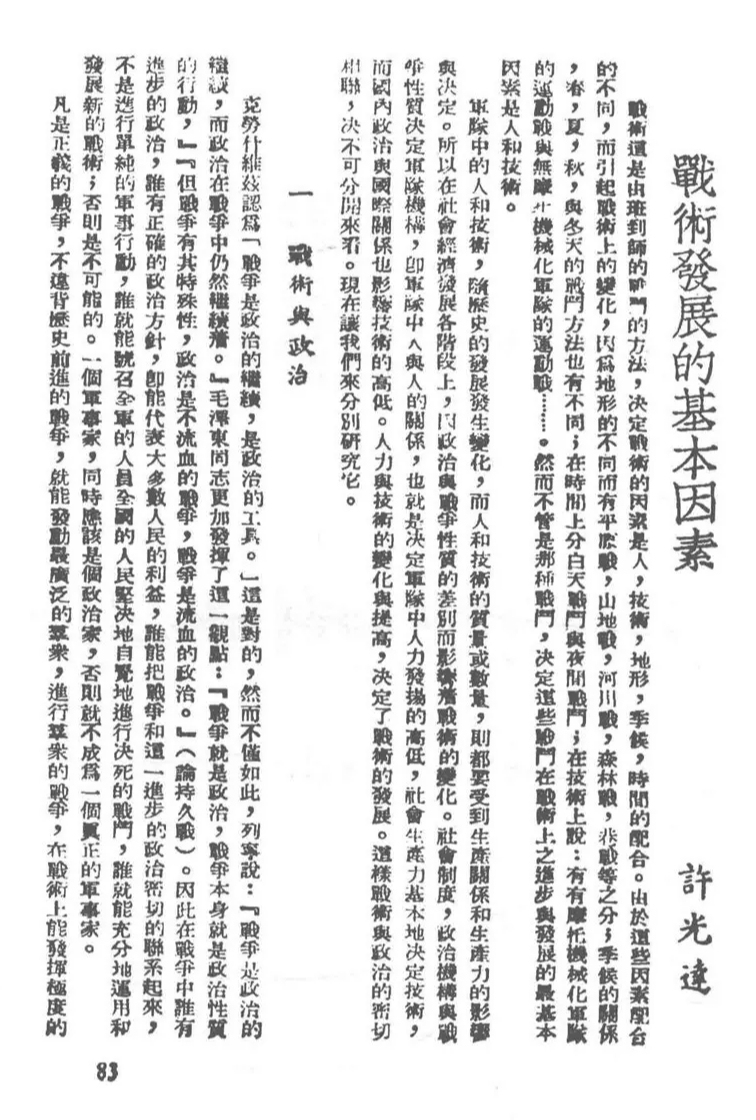 戰術發展的基本因素
許光達
戰術這是由班到師的戰鬥的方法，決定戰術的因素是人，技術，地形，季候，時間的配合。由於這些因素配合
的不同，而引起戰術上的變化，因爲地形的不同而有平原戰，山地戰，河川戰，森林戰，巷戰等之分；季候的關係
，春，夏，秋，與冬天的戰鬥方法也有不同；在時間上分白天戰鬥與夜間戰鬥；在技術上說：有有摩托機械化軍隊
的運動戰與無摩托機械化軍隊的運動戰………。然而不管是那種戰鬥，决定這些戰鬥在戰術上之進步與發展的最基本
因素是人和技術。
軍隊中的人和技術，隨歷史的發展發生變化，而人和技術的質量或數量，則都要受到生產關係和生產力的影響
與决定。所以在社會經濟發展各階段上，因政治與戰爭性質的差別而影響着戰術的變化。社會制度，政治機構與戰
爭性質決定軍隊機構，卽軍隊中人與人的關係，也就是决定軍隊中人力發揚的高低，社會生產力基本地決定技術，
而國內政治與國際關係也影響技術的高低。人力與技術的變化與提高，決定了戰術的發展。這樣戰術與政治的密切
相聯，决不可分開來看。現在讓我們來分別研究它。
一　戰術與政治
克勞什維茲認爲「戰爭是政治的繼續，是政治的工具。」這是對的，然而不僅如此，列寧說：『戰爭是政治的
繼續，而政治在戰爭中仍然繼續着。』毛澤東同志更加發揮了這一觀點：『戰爭就是政治，戰爭本身就是政治性質
的行動，』『但戰爭有其特殊性，政治是不流血的戰爭，戰爭是流血的政治。』（論持久戰）。因此在戰爭中誰有
進步的政治，誰有正確的政治方針，卽能代表大多數人民的利益，誰能把戰爭和這一進步的政治密切的聯系起來，
不是進行單純的軍事行動，誰就能號召全軍的人員全國的人民堅决地自覺地進行決死的戰鬥，誰就能充分地運用和
發展新的戰術；否則是不可能的。一個軍事家，同時應該是個政治家，否則就不成爲一個真正的軍事家。
凡是正義的戰爭，不違背歷史前進的戰爭，就能發動最廣泛的羣衆，進行羣衆的戰爭，在戰術上能發揮極度的
83